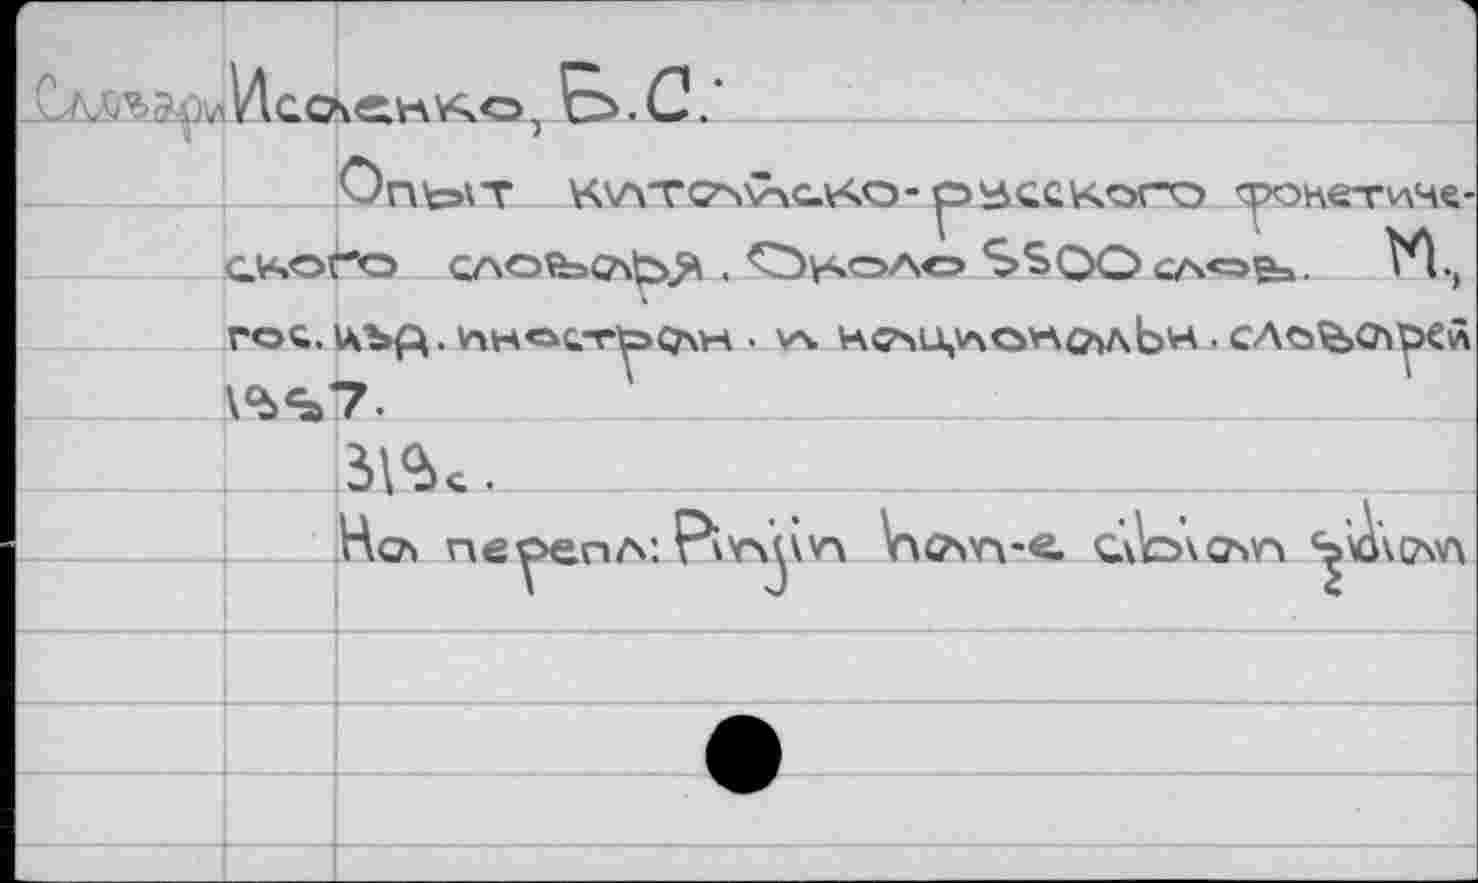 Словари Исаенко, Б.С.
Опыт китайско-русского фонетиче-
ского словаря. Около 5500 слов. М.,
гос. изд. иностран. и национальн. словарей
1957.
319с.
На перепл: Pinjin han-e